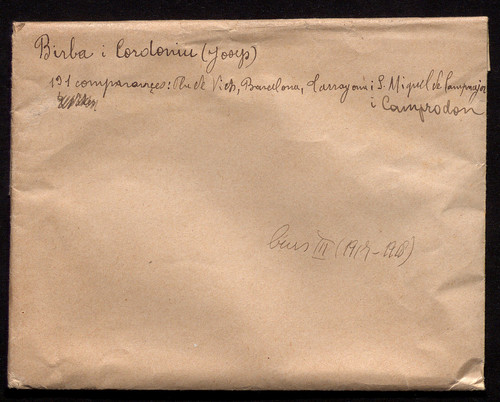 Birba i Cordoniu (Josep)
191 comparances: Pla de Vich, Barcelona, Tarragona i S. Miquel de Campmajor
i Camprodon
Curs III (1917-1918)